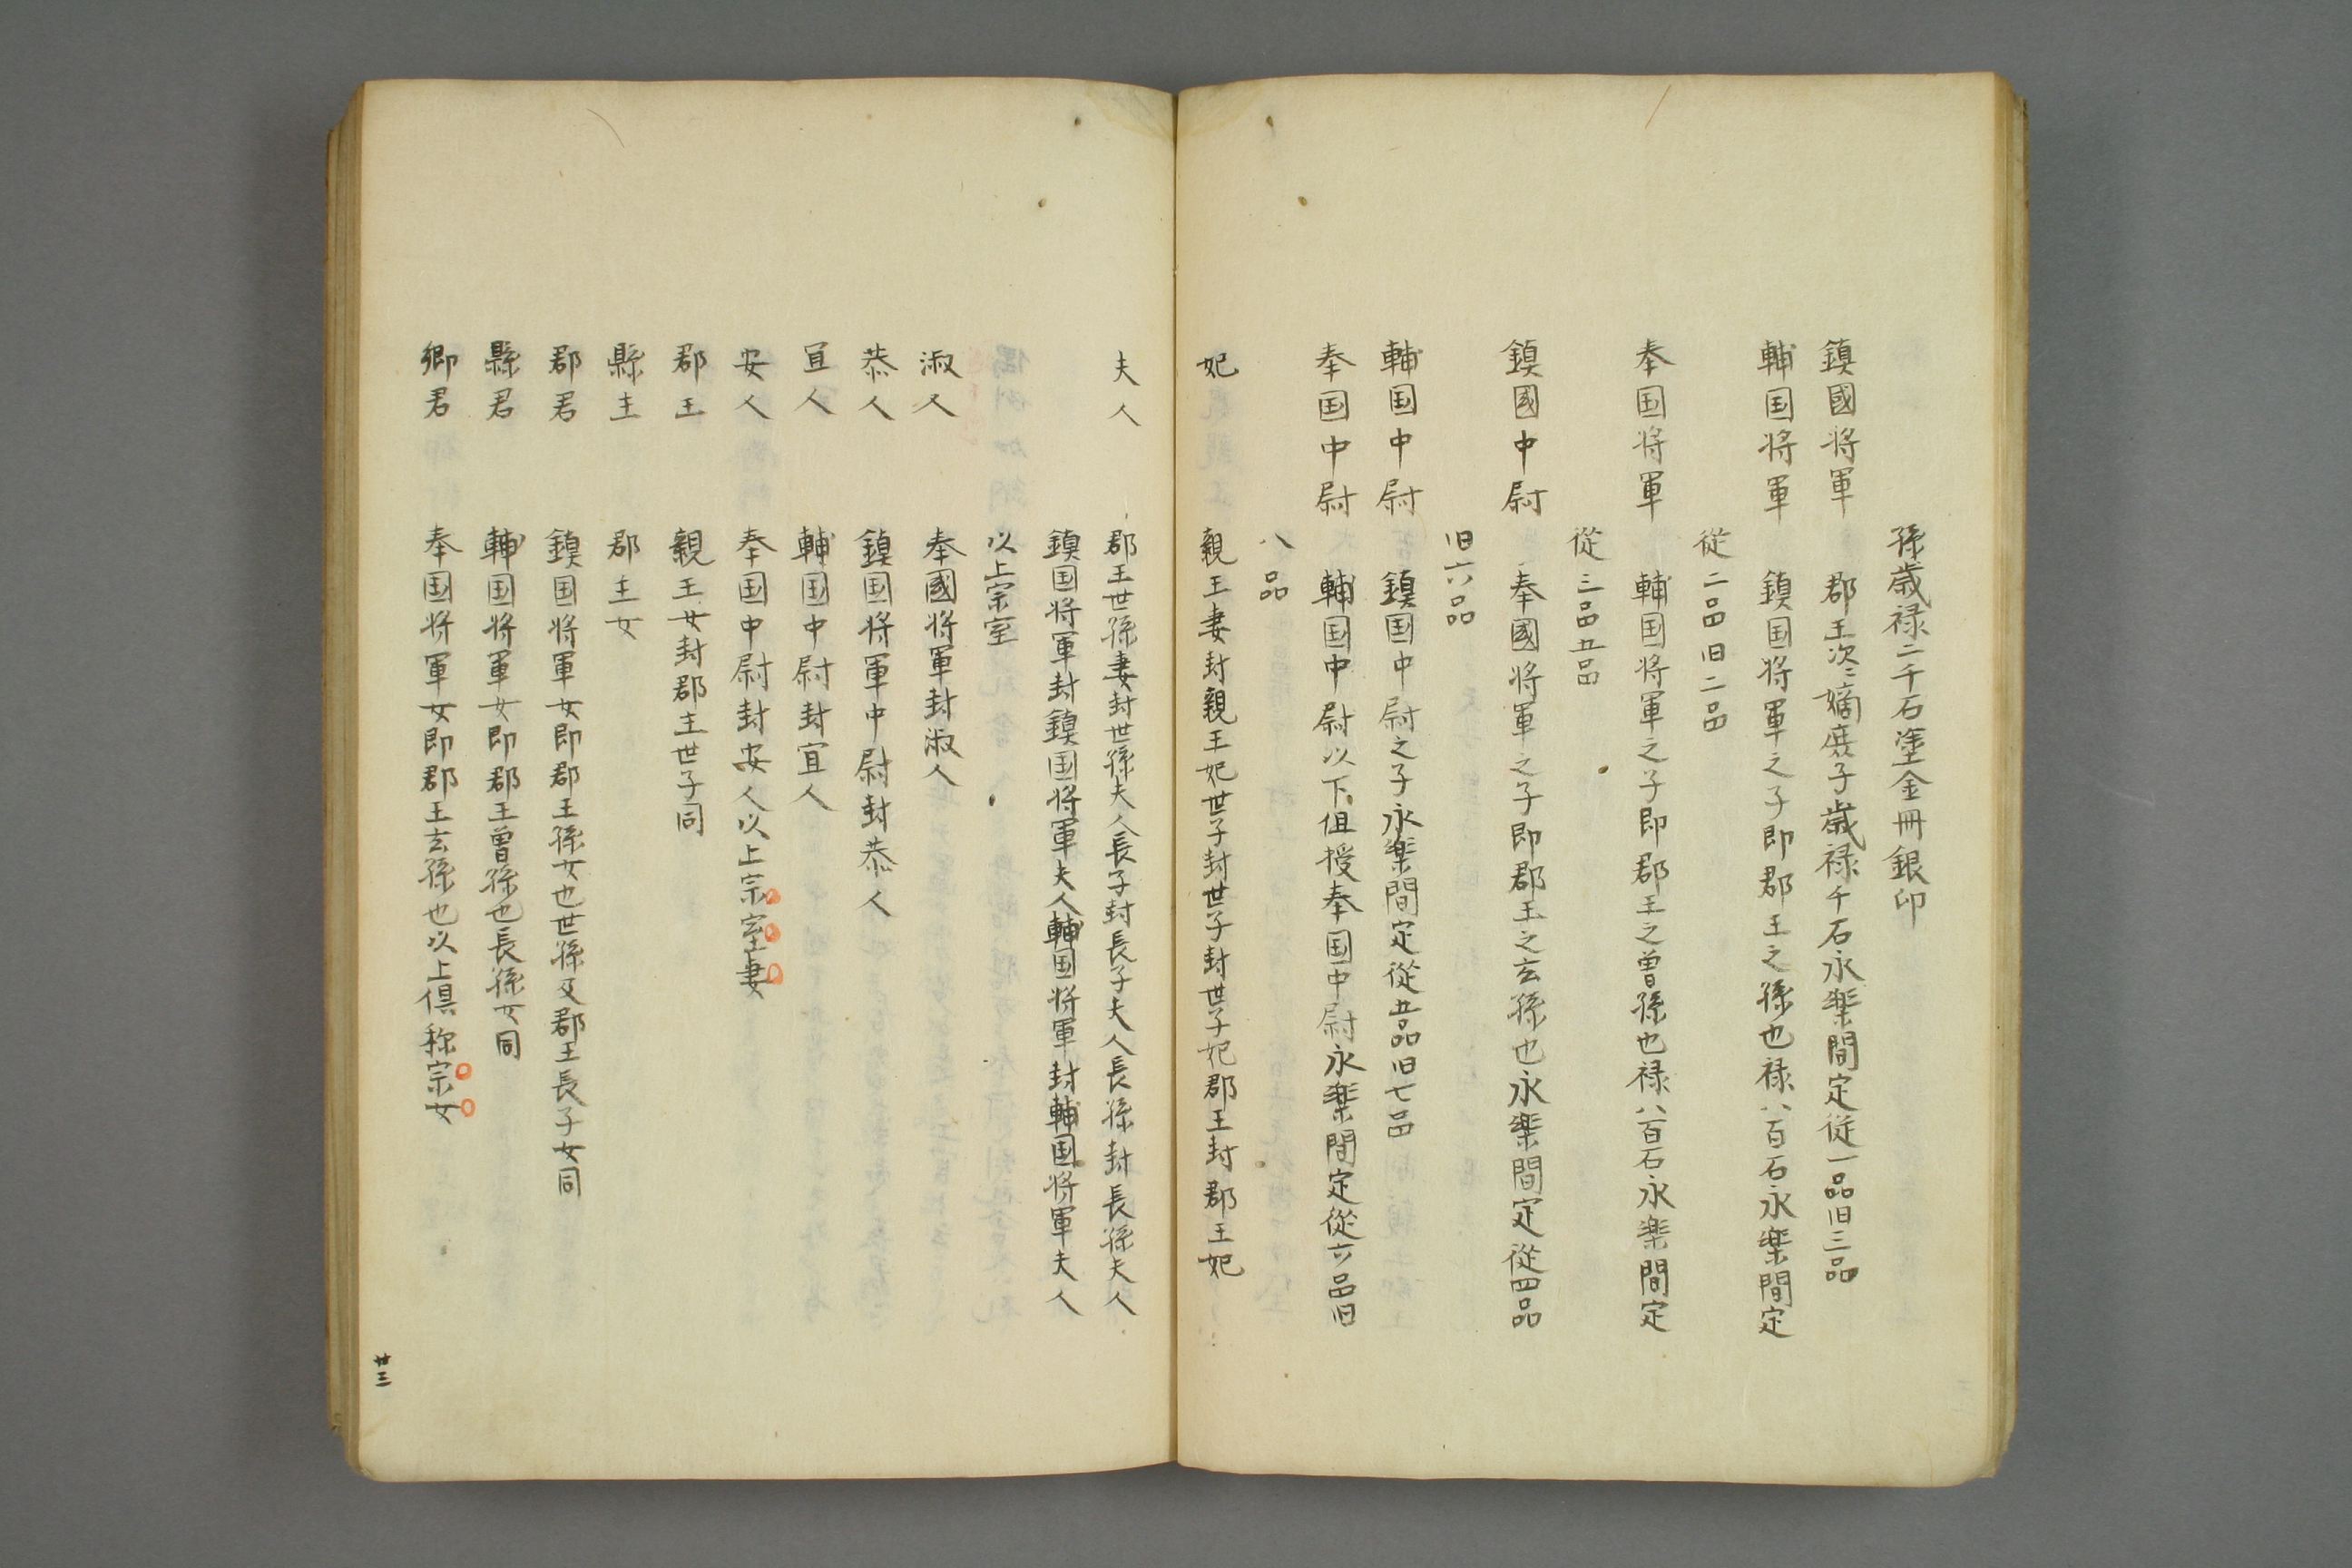 孫歳禄二千石塗金冊銀印
鎮國将軍　郡王次〻嫡庶子歳禄千石永楽間定従一品旧三品
輔国将軍　鎮国将軍之子即郡王之孫也禄八百石永楽間定
従二品旧二品
奉国将軍　輔国将軍之子即郡王之曽孫也禄八百石永楽間定
従三品五品
鎮國中尉　奉國将軍之子即郡王之玄孫也永楽間定従四品
旧六品
輔国中尉　鎮国中尉之子永楽間定従五品旧七品
奉国中尉　輔国中尉以下俱授奉国中尉永楽間定従六品旧
八品
妃　親王妻封親王妃世子封世子封世子妃郡王封郡王妃
夫人　郡王世孫妻封世孫夫人長子封長子夫人長孫封長孫夫人
鎮国将軍封鎮国将軍夫人輔国将軍封輔国将軍夫人
以上宗室
淑人　奉國将軍封淑人
恭人　鎮国将軍中尉封恭人
宜人　輔国中尉封宜人
安人　奉国中尉封安人以上宗室妻
郡王　親王女封郡主世子同
縣主　郡主女
郡君　鎮国将軍女即郡王孫女也世孫及郡王長子女同
縣君　輔国将軍女即郡王曽孫也長孫女同
郷君　奉国将軍女即郡王玄孫也以上俱称宗女
廿三